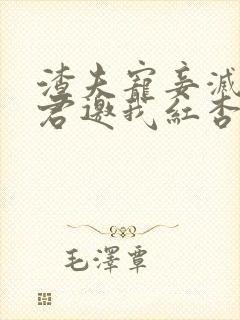 渣夫寵妾滅
君邀我紅杏
毛澤覃